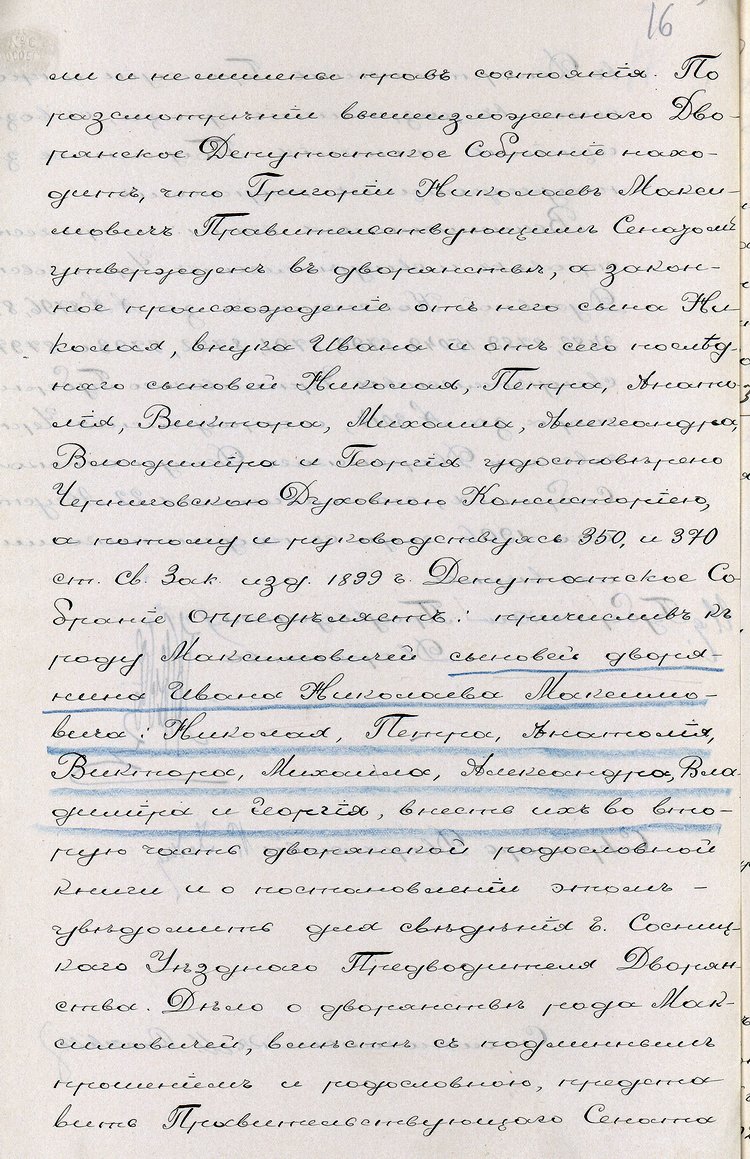 16
ми и не лишены правъ состоянiя. По
разсмотрѣнiи вышеизложеннаго Дво-
рянское Депутатское Собранiе нахо-
дитъ, что Григорiй Николаевъ Макси-
мовичъ Правительствующимъ Сенатомъ
утвержденъ въ дворянствѣ, а закон-
ное происхожденiе отъ него сына Ни-
колая, внука Ивана и отъ сего послѣд-
няго сыновей Николая, Петра, Анато-
лiя, Виктора, Михаила, Александра,
Владимiра и Георгiя удостовѣрено
Черниговскою Духовною Консисторiею,
а потому и руководствуясь 350, и 370
ст. Св. Зак. изд. 1899 г. Депутатское Со
бранiе Опредѣляетъ: причисливъ къ
роду Максимовичей сыновей дворя-
нина Ивана Николаева Максимо-
вича: Николая, Петра, Анатолiя,
Виктора, Михаила, Александра, Вла
димiра и Георгiя, внесть ихъ во вто-
рую часть дворянской родословной
книги и о постановленiи этомъ -
увѣдомить для свѣдѣнiя г. Сосниц-
каго Уѣзднаго Предводителя Дворян-
ства. Дѣло о дворянствѣ рода Мак-
симовичей, вмѣстѣ съ подлиннымъ
прошенiемъ и родословною, предста
вить Правительствующаго Сената